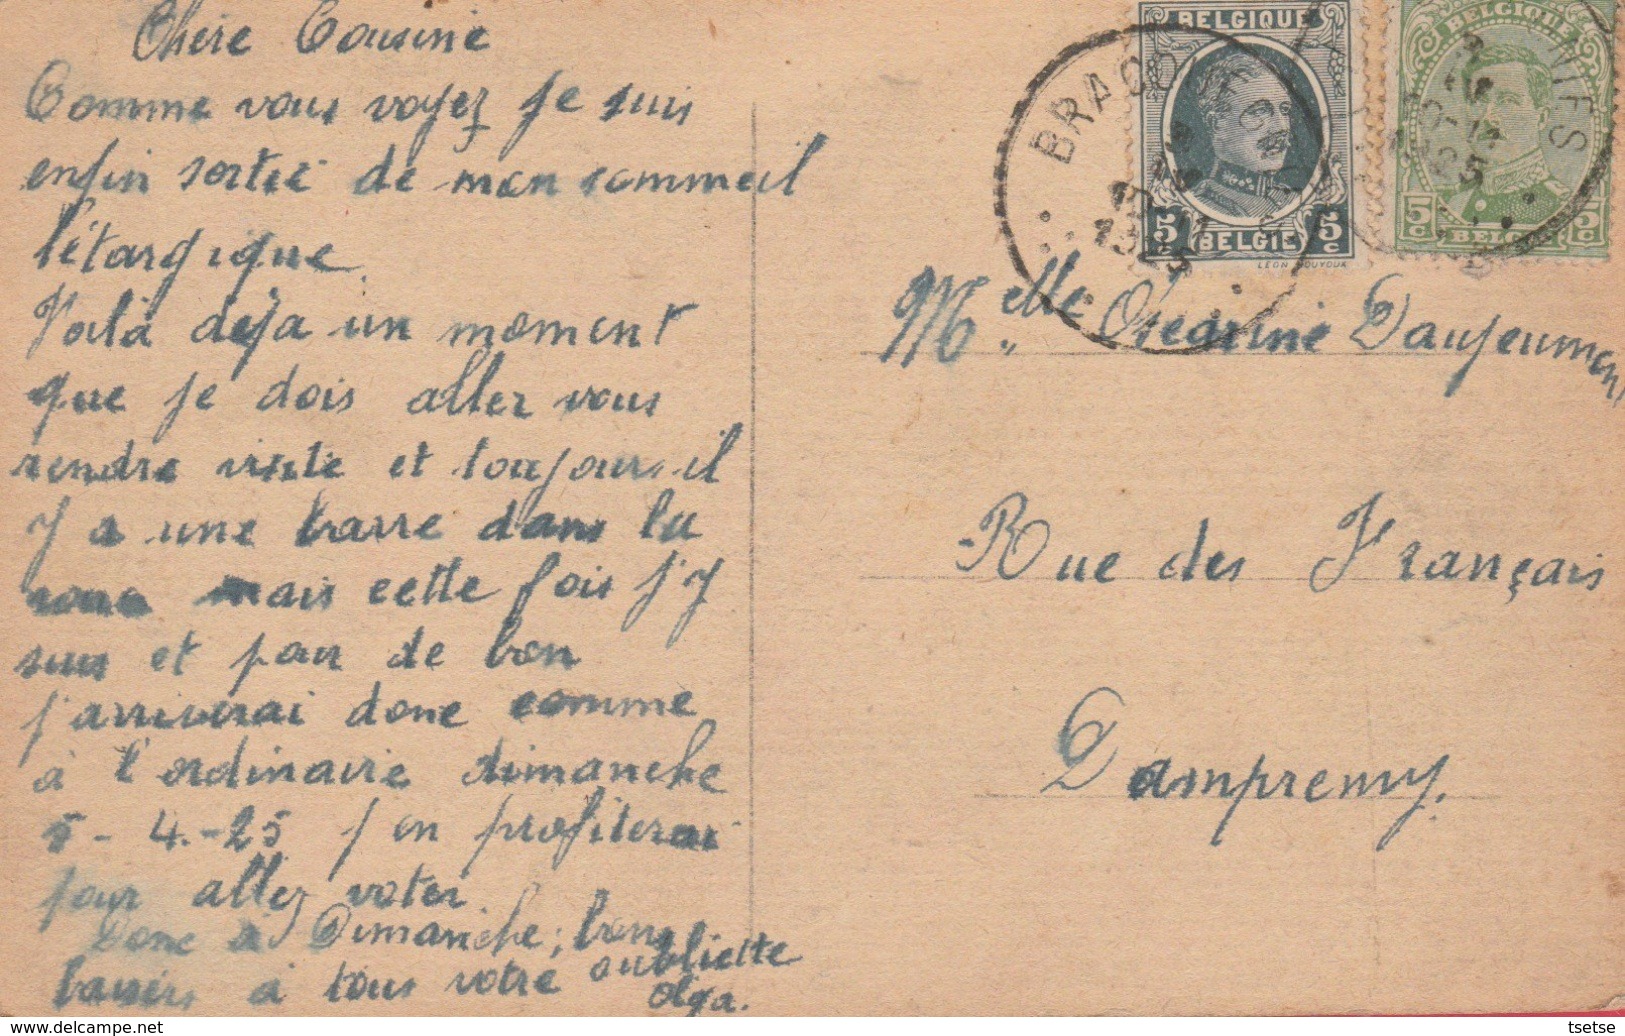 Chère Cousine
Comme vous voyez je suis
enfin sortie de mon sommeil
l'étargique.
Voilà déja un moment
que je dois aller vous
rendre visite et toujours il
y a une barre dans la
roue mais cette fois j'y
suis et pour de bon
j'arriverai donc comme
à l'ordinaire dimanche
5-4.-25 j'en profiterai
pour allez voter.
Donc à Dimanche; bons
baisers à tous votre oubliette
Olga.
BELGIQUE
5c BELGIE 5c
BELGIQUE
5c 5c
1925
Melle
Rue des Français
Dampremy.
delcampe.net
tsetse